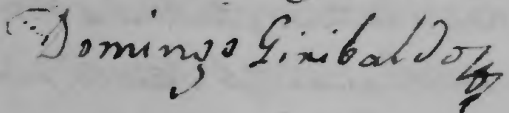 Domingo Giribaldo